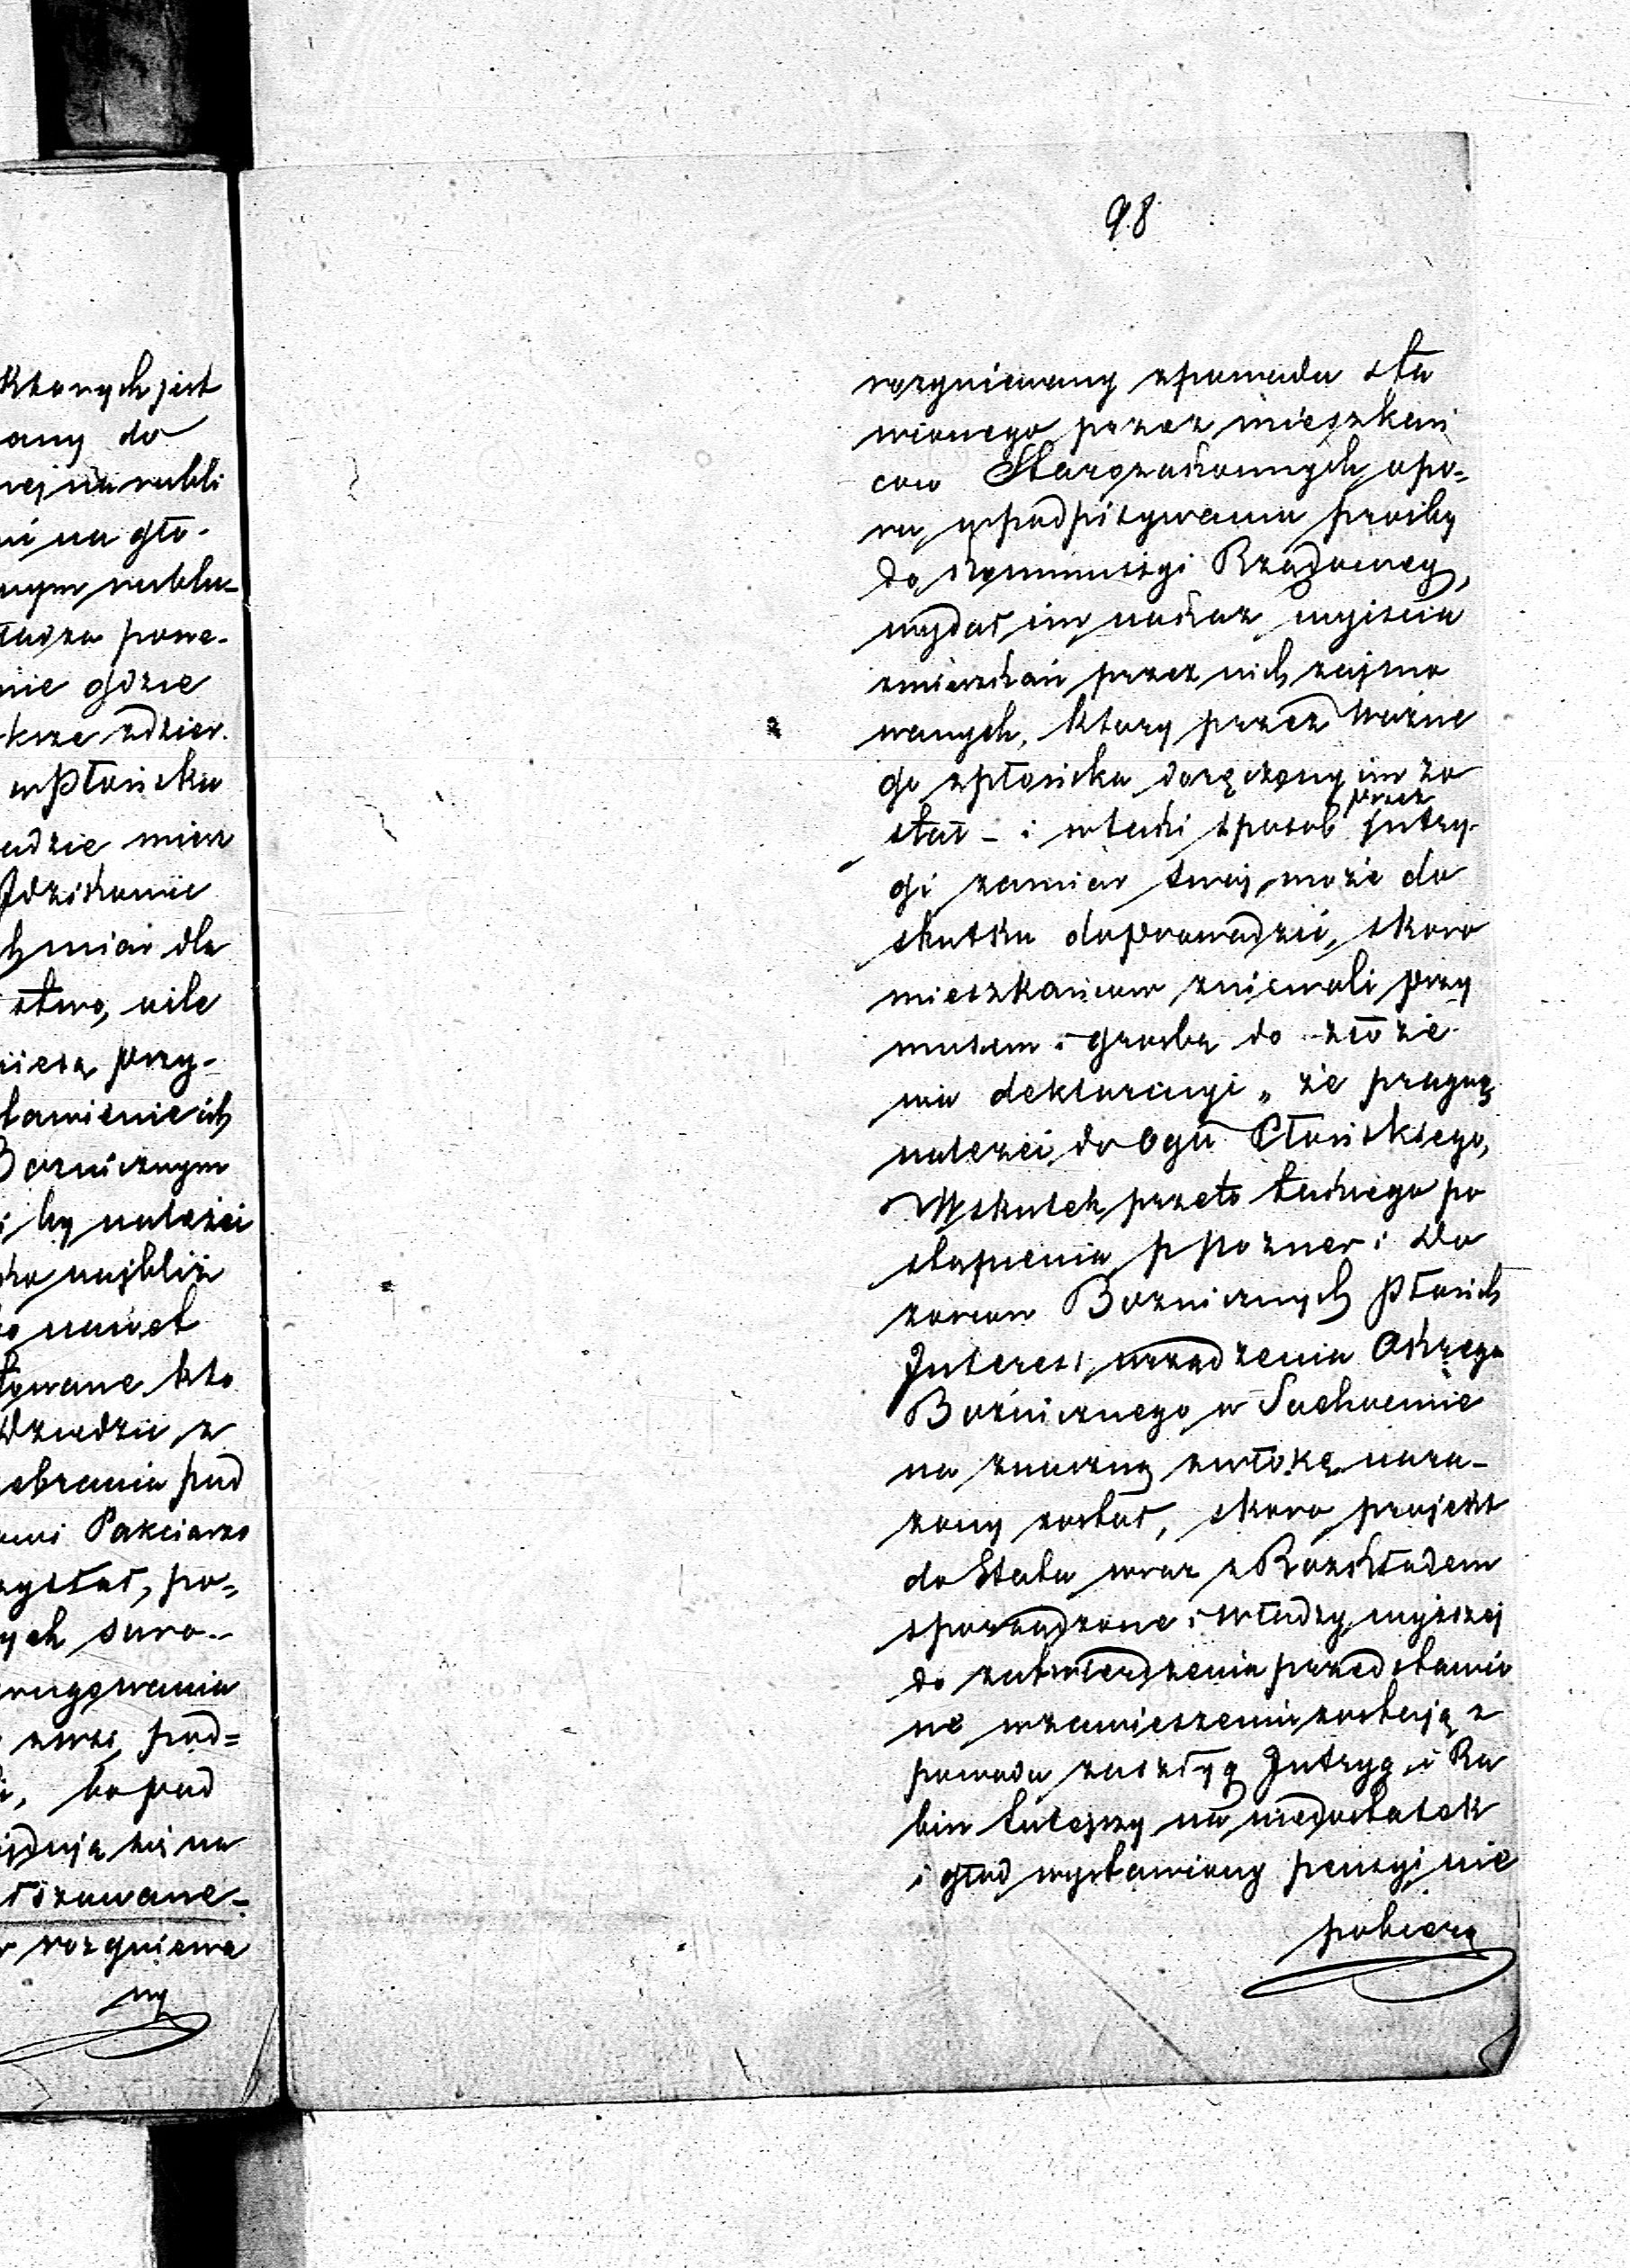 98
ktorych jest
any do
nej na rubli
ni na gło-
nym rublu-
ładza powe-
nie gdzie
ksze zdzier.
w Płońsku
adzie miesz
chmiar dla
stwo, oile
niosą przy-
tawienie ich
Boznicznym
i by należei
nawet
towane kto
Dziedzic z
ebrania pod
ami Pakciarzo
zystać, po=
ych suro-
rugowania
pod=
, bo pod
jdują się na
iszowane-
rozgniewa
ny
rozgniewany zpowodu sta
wionego przez mieszkań
cow Starozakonnych opo=
ru wpodpisywaniu prosby
do Kommissyi Rządowey,
wydał im nakaz wyiscia
zmieszkań przez nich zajmo
wanych, ktory przez Wozne
go zpłońska doręczony im zo
stał - i wtaki sposob przez Intry-
gi zamiar swoj może do
skutku doprowadzić, skoro
mieszkańcow zniewoli przy
musem i grozbą do złoże
nia deklaracyi „ że pragną
należeć do Ogu Płońskiego,
Wskutek przeto takiego po
stąpienia p Pozner i Do
zorcow Boznicznych Płońsk
Interes urządzenia Okręgu
Bożnicznego w Sochocinie
na znaczną zwłokę nara-
żony został, skoro projekt
do Etatu wraz z Rozkładem
sporządzone i Władzy wyższej
do zatwierdzenia przedstawio
ne wzawieszeniu zostają z
powodu zaszłyq Intryg, i Ra
bin tutejszy na niedostatek
i głod wystawiony pensyi nie
pobiera